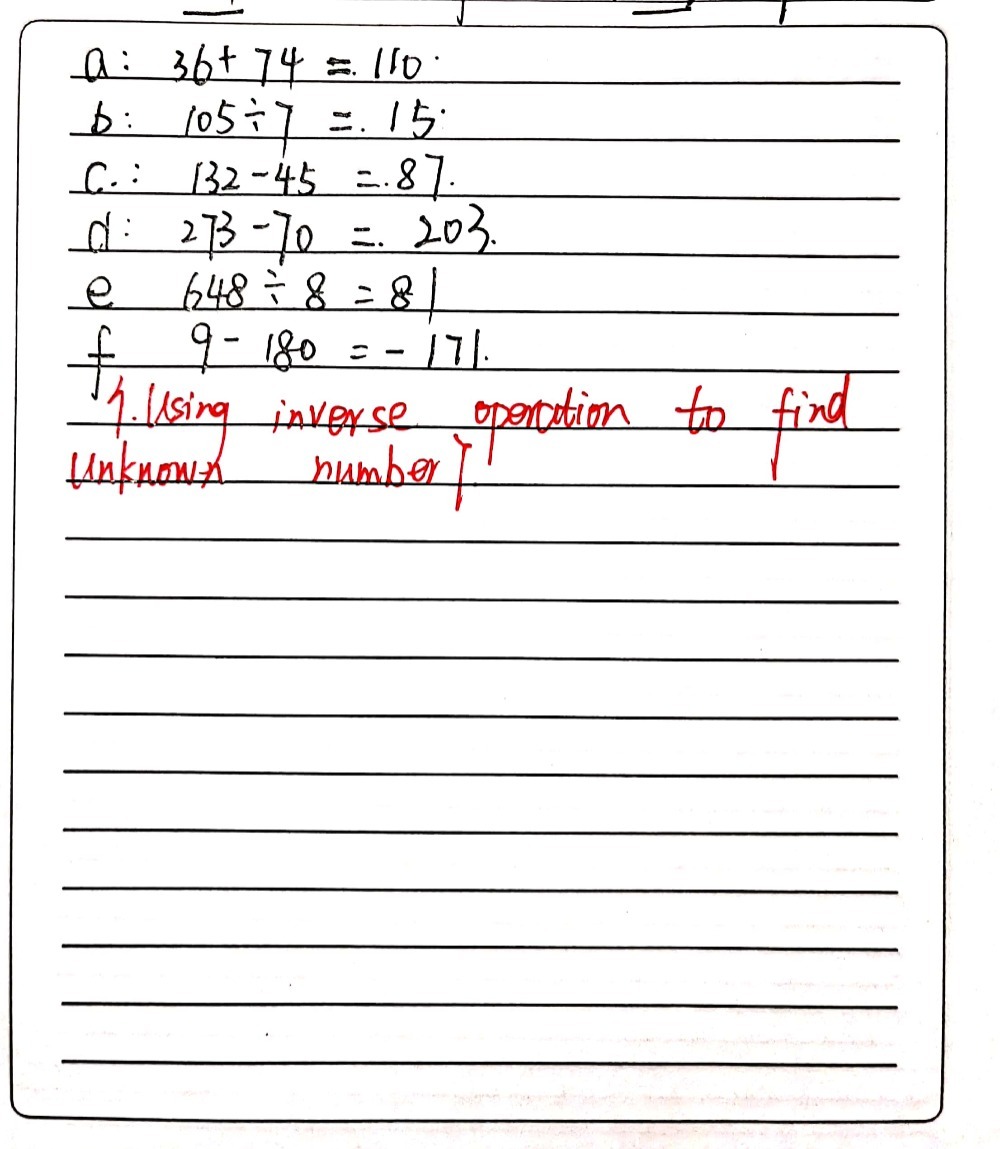 a: 36+ 74 =. 110.
b: 105÷7 =. 15.
c.: 132-45 =.87.
d: 273-70 =. 203.
e 648 ÷ 8 = 81
f 9- 180 = - 171.
Using inverse operation to find
unknown number